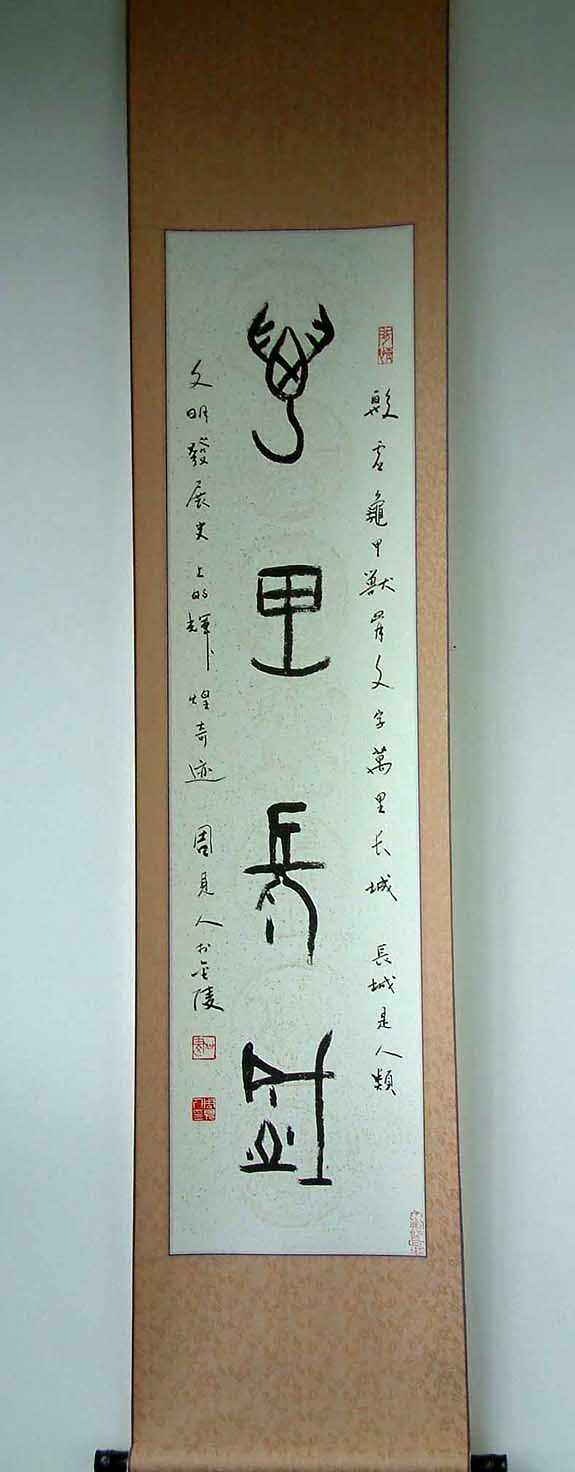 殷虛龜甲獸骨文字萬里长城 長城是人類
萬里長城
文明發展史上的輝煌奇迹 周見人於金陵